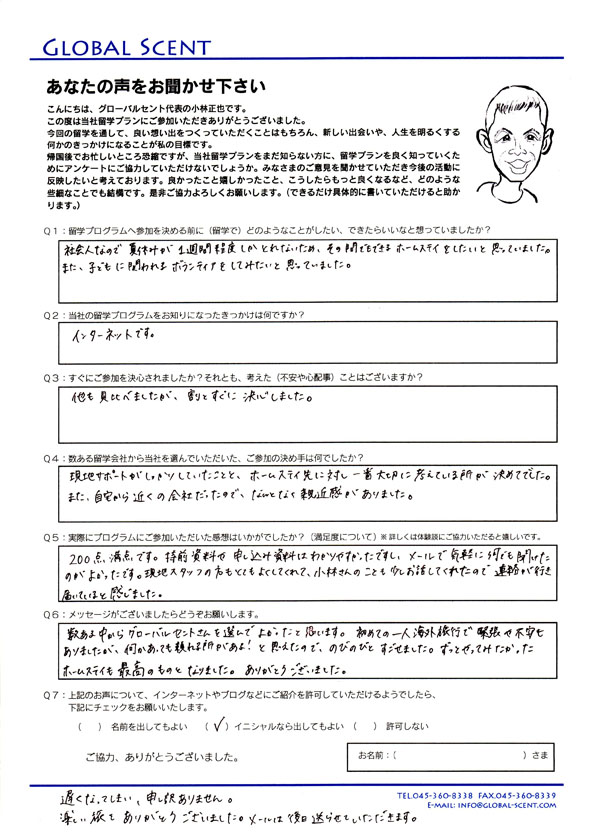 GLOBAL SCENT
あなたの声をお聞かせ下さい
こんにちは、グローバルセント代表の小林正也です。
この度は当社留学プランにご参加いただきありがとうございました。
今回の留学を通して、良い想い出をつくっていただくことはもちろん、新しい出会いや、人生を明るくする
何かのきっかけになることが私の目標です。
帰国後でお忙しいところ恐縮ですが、当社留学プランをまだ知らない方に、留学プランを良く知っていくた
めにアンケートにご協力していただけないでしょうか。みなさまのご意見を聞かせていただき今後の活動に
反映したいと考えております。良かったこと嬉しかったこと、こうしたらもっと良くなるなど、どのような
些細なことでも結構です。是非ご協力よろしくお願いします。（できるだけ具体的に書いていただけると助か
ります。）
Q1：留学プログラムへ参加を決める前に（留学で）どのようなことがしたい、できたらいいなと想っていましたか？
社会人なので 夏休みが 1週間程度しかとれないため、その間でもできる ホームステイをしたいと思っていました。
また、子どもに関われる ボランティアをしてみたいと思っていました。
Q2：当社の留学プログラムをお知りになったきっかけは何ですか？
インターネットです。
Q3：すぐにご参加を決心されましたか？それとも、考えた（不安や心配事）ことはございますか？
他も見比べましたが、割とすぐに決心しました。
Q4：数ある留学会社から当社を選んでいただいた、ご参加の決め手は何でしたか？
現地サポートがしっかりしていたことと、ホームステイ先に対し一番大切に考えている所が決めてでした。
また、自宅から近くの会社だったので、なんとなく親近感がありました。
Q5：実際にプログラムにご参加いただいた感想はいかがでしたか？（満足度について）※詳しくは体験談にご協力いただけると嬉しいです。
200点満点です。持前資料や申し込み資料はわかりやすかったですし、メールで気軽に何でも聞けた
のがよかったです。現地スタッフの方もとてもよくしてくれて、小林さんのことも少しお話してくれたので連絡が行き
届いているなと感じました。
Q6：メッセージがございましたらどうぞお願いします。
数ある中からグローバルセントさんを選んでよかったと思います。初めての一人海外旅行で緊張や不安も
ありましたが、何かあっても頼れる所がある！と思えたので、のびのびとすごせました。ずっとやってみたかった
ホームステイも最高のものとなりました。ありがとうございました。
Q7：上記のお声について、インターネットやブログなどにご紹介を許可していただけるようでしたら、
下記にチェックをお願いいたします。
（　）名前を出してもよい （✓）イニシャルなら出してもよい （　）許可しない
ご協力、ありがとうございました。
お名前：（　）さま
TEL.045-360-8338 FAX.045-360-8339
E-MAIL: INFO@GLOBAL-SCENT.COM
遅くなってしまい、申し訳ありません。
楽しい旅をありがとうございました。メールは後日送らせていただきます。